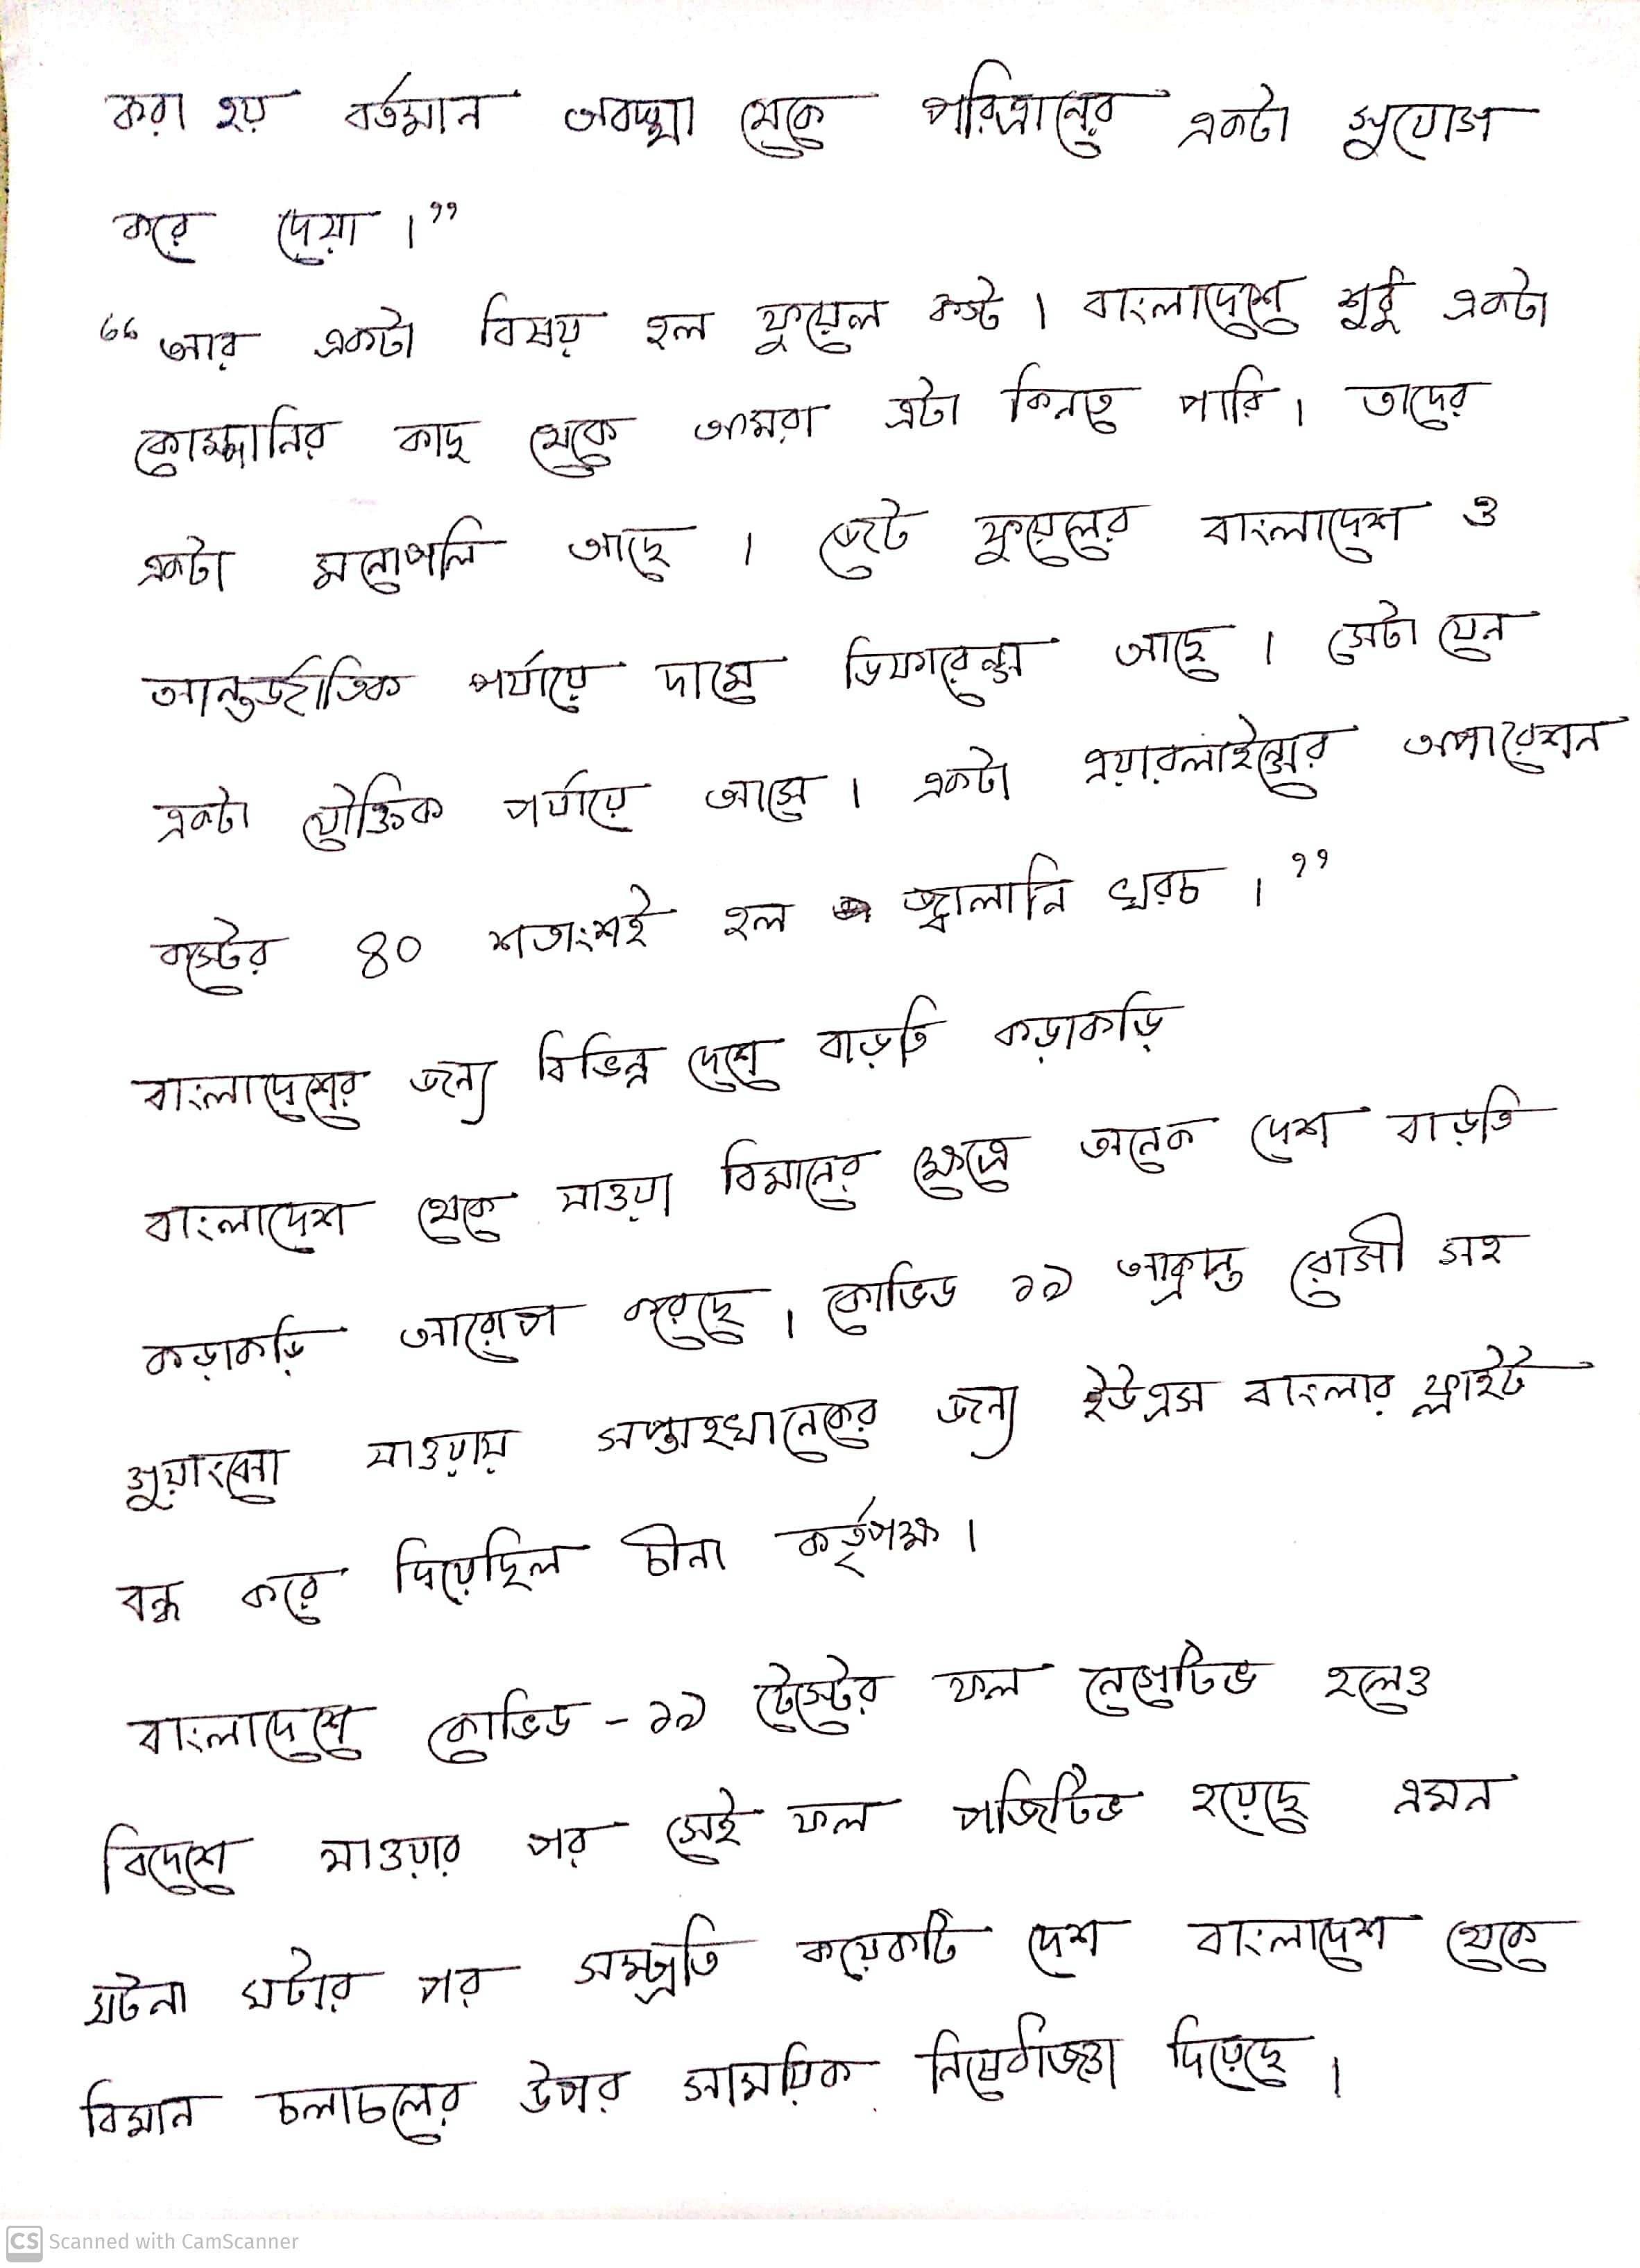 করা হয় বর্তমান অবস্থা থেকে পরিত্রানের একটা সুযোগ
করে দেয়া।”
“আর একটা বিষয় হল ফুয়েল কস্ট। বাংলাদেশে শুধু একটা
কোম্পানির কাছ থেকে আমরা এটা কিনতে পারি। তাদের
একটা মনোপলি আছে। জেট ফুয়েলের বাংলাদেশ ও
আন্তর্জাতিক পর্যায়ে দামে ডিফারেন্স আছে। সেটা যেন
একটা যৌক্তিক পর্যায়ে আসে। একটা এয়ারলাইন্সের অপারেশন
কস্টের ৪০ শতাংশই হল জ্বালানি খরচ।”
বাংলাদেশের জন্য বিভিন্ন দেশে বাড়তি কড়াকড়ি
বাংলাদেশ থেকে যাওয়া বিমানের ক্ষেত্রে অনেক দেশ বাড়তি
কড়াকড়ি আরোপ করেছে। কোভিড ১৯ আক্রান্ত রোগী সহ
যাওয়ায় সপ্তাহখানেকের জন্য ইউএস বাংলার ফ্লাইট
বন্ধ করে দিয়েছিল চীনা কর্তৃপক্ষ।
বাংলাদেশে কোভিড-১৯ টেস্টের ফল নেগেটিভ হলেও
বিদেশে যাওয়ার পর সেই ফল পজিটিভ হয়েছে এমন
ঘটনা ঘটার পর সম্প্রতি কয়েকটি দেশ বাংলাদেশ থেকে
বিমান চলাচলের উপর সাময়িক নিষেধাজ্ঞা দিয়েছে।
CS Scanned with CamScanner